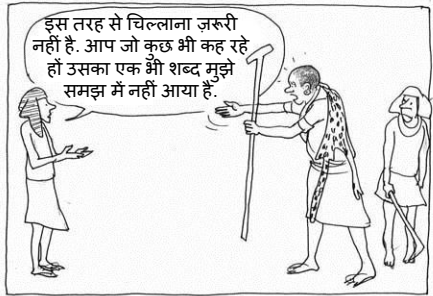 इस तरह से चिल्लाना ज़रूरी
नहीं है. आप जो कुछ भी कह रहे
हों उसका एक भी शब्द मुझे
समझ में नहीं आया है.